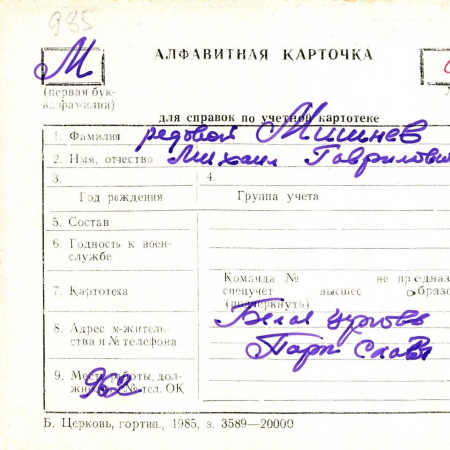 985
М
АЛФАВИТНАЯ КАРТОЧКА
(первая бук-
ва фамилии)
для справок по учетной картотеке
1. Фамилия рядовой Мишнев
2. Имя, отчество Михаил Гаврилович
3.
4.
Год рождения
Группа учета
5. Состав
6. Годность к воен-
службе
7. Картотека
Команда № не предназ
спецучет высшее образо
(подчеркнуть)
8. Адрес м-житель-
ства и № телефона
Белая церковь
Парк Славы
9. Место работы, дол-
жность, № тел. ОК
962
Б. Церковь, гортип., 1985, з. 3589—20000